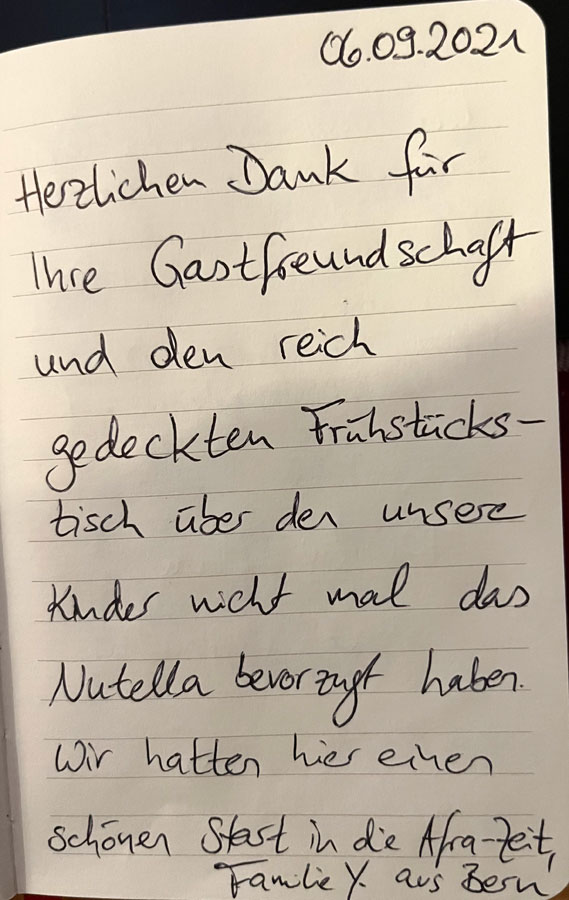 06.09.2021
Herzlichen Dank für
Ihre Gastfreundschaft
und den reich
gedeckten Frühstücks-
tisch über den unsere
Kinder nicht mal das
Nutella bevorzugt haben.
Wir hatten hier einen
schönen Start in die Afra-Zeit,
Familie Y. aus Bern